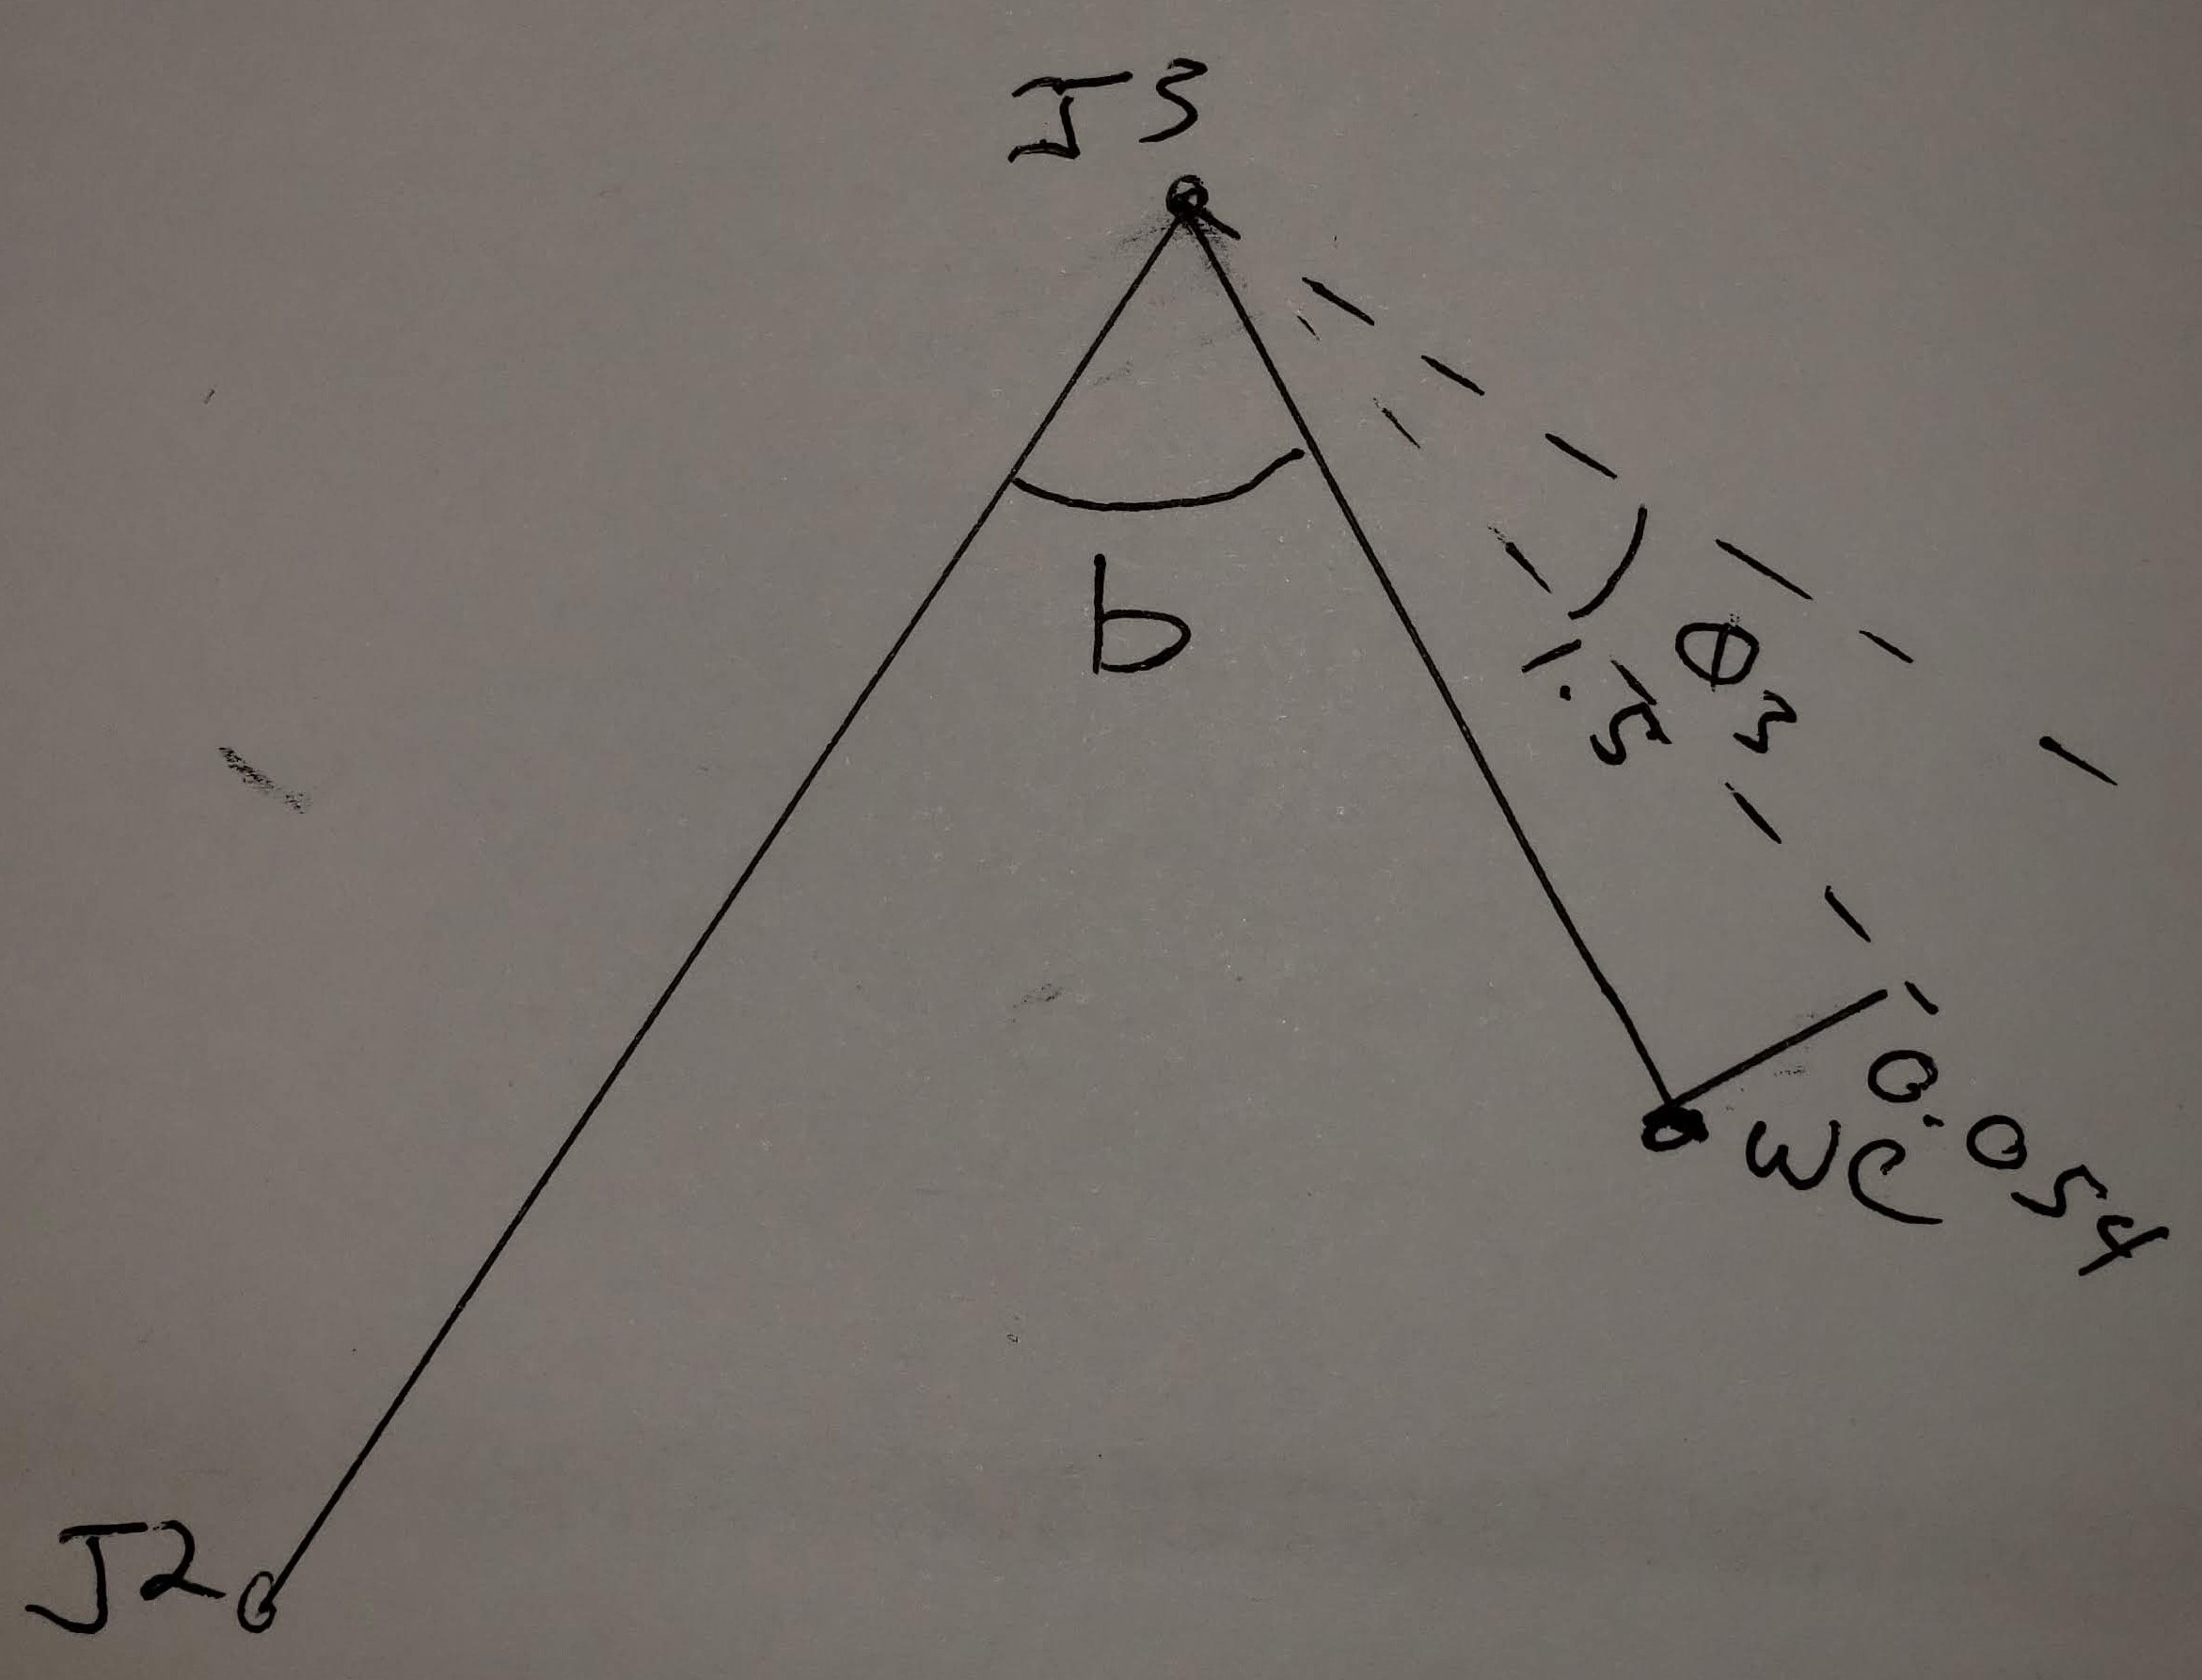 J3
b
θ3
1.5
0.054
WC
J2